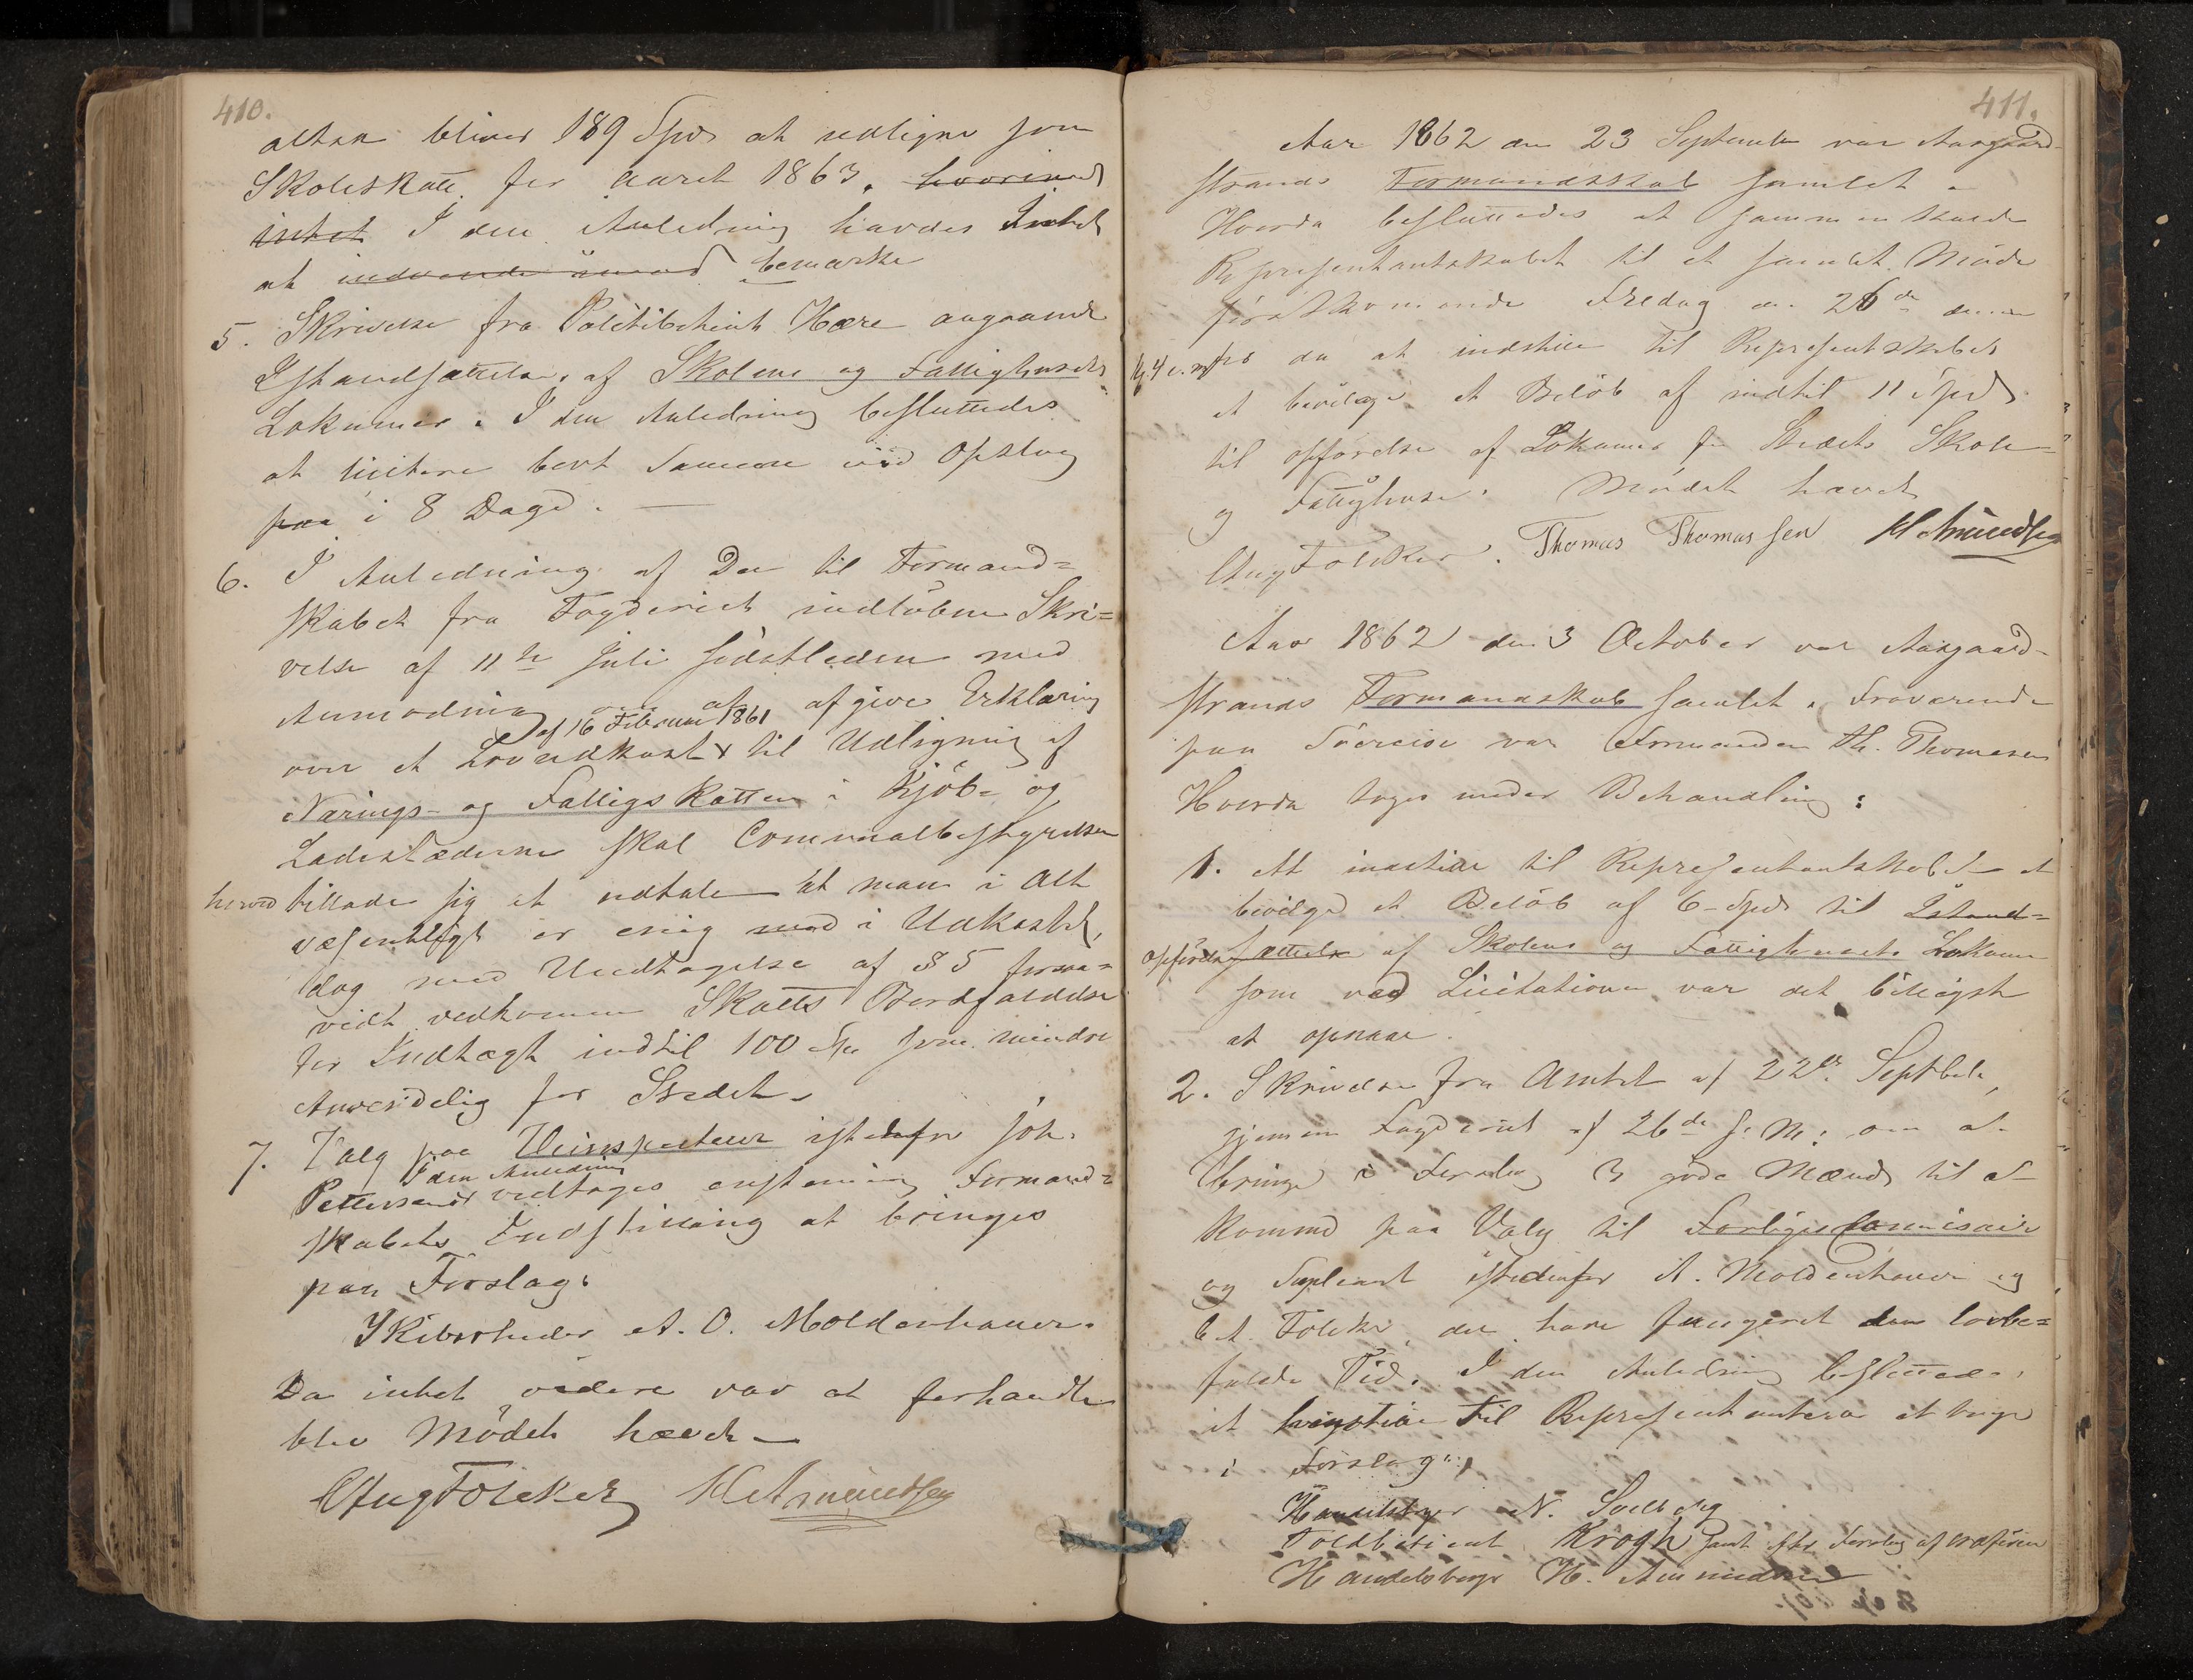 410.
altsaa bliver 189 Spd at udligne som
Skoleskatt for Aaret 1863. hvorimod
intet I den Anledning havdes Intet
at indvende imod bemærke
5. Skrivelse fra Politibetjent Hære angaaende
Istandsættelse af Skolens og Fattighusets
Lokumer. I den Anledning besluttedes
at licitere bort Samme ved Opslag
paa i 8 Dage. —
6. I Anledning af Den til Formand=
skabet fra Fogderiet indløbne Skri=
velse af 11te Juli sidstleden med
Anmodning om at afgive Erklæring
af 16 Februar 1861
over et Lovudkast til Udligning af
Nærings- og Fattigskatten i Kjøb- og
Ladestæderne skal Communalbestyrelsen
herved tillade sig at udtale at man i Alt
væsentligt er enig med i Udkastet,
dog med Undtagelse af § 5 forsaa=
vidt vedkommer Skatts Bortfaldelse
for Indtægt indtil 100 Spd som mindre
Anvendelig for Stedet.
7. Valg paa Veiinspecteur istedetfor Joh.
I den Anledning
Pettersen vedtages enstemmig Formand=
skabets Indstilling at bringes
paa Forslag:
Skibsrheder A. O. Moldenhauer.
Da intet videre var at forhandle
blev Mødet hævet —
CAugFoleker HAmundsen
411.
Aar 1862 den 23 September var Aasgaard-
strands Formandsskab samlet.
Hvorda besluttedes at sammenkalde
Representantskabet til et samlet Møde
førstkommende Fredag den 26de dennes
Kl 4 e. m. for da at indstille til Representskabet
at bevilge et Beløb af indtil 11 Spd
til opførelse af Lokumer for Stedets Skole-
og Fattighuse. Mødet hævet
CAugFoleker. Thomas Thomassen HAmundsen
Aar 1862 den 3 October var Aasgaard-
strands Formandskab samlet. Fraværende
paa Søreise var Formanden Th. Thomesen
Hvorda toges under Behandling:
1. At indstille til Representantskabet at
bevilge et Beløb af 6 Spd til Istand=
opførelse sættelse af Skolens og Fattighusets Lokumer
som ved Licitationen var det billigste
at opnaae.
2. Skrivelse fra Amtet af 22de Septbr.
gjennem Fogderiet af 26de s: M: om at
bringe i Forslag 3 gode Mænd til at
komme paa Valg til Forligescommisair
og Supleant istedenfor A. Moldenhauer og
C A. Foleker, der have fungeret den lovbe=
falede Tid. I den Anledning besluttedes
at indstille til Representanterne at bringe
i Forslag:
Handelsborger N. Solberg
Toldbetjent Krogh samt efter Forslag af
Handelsborger H. Amundsen